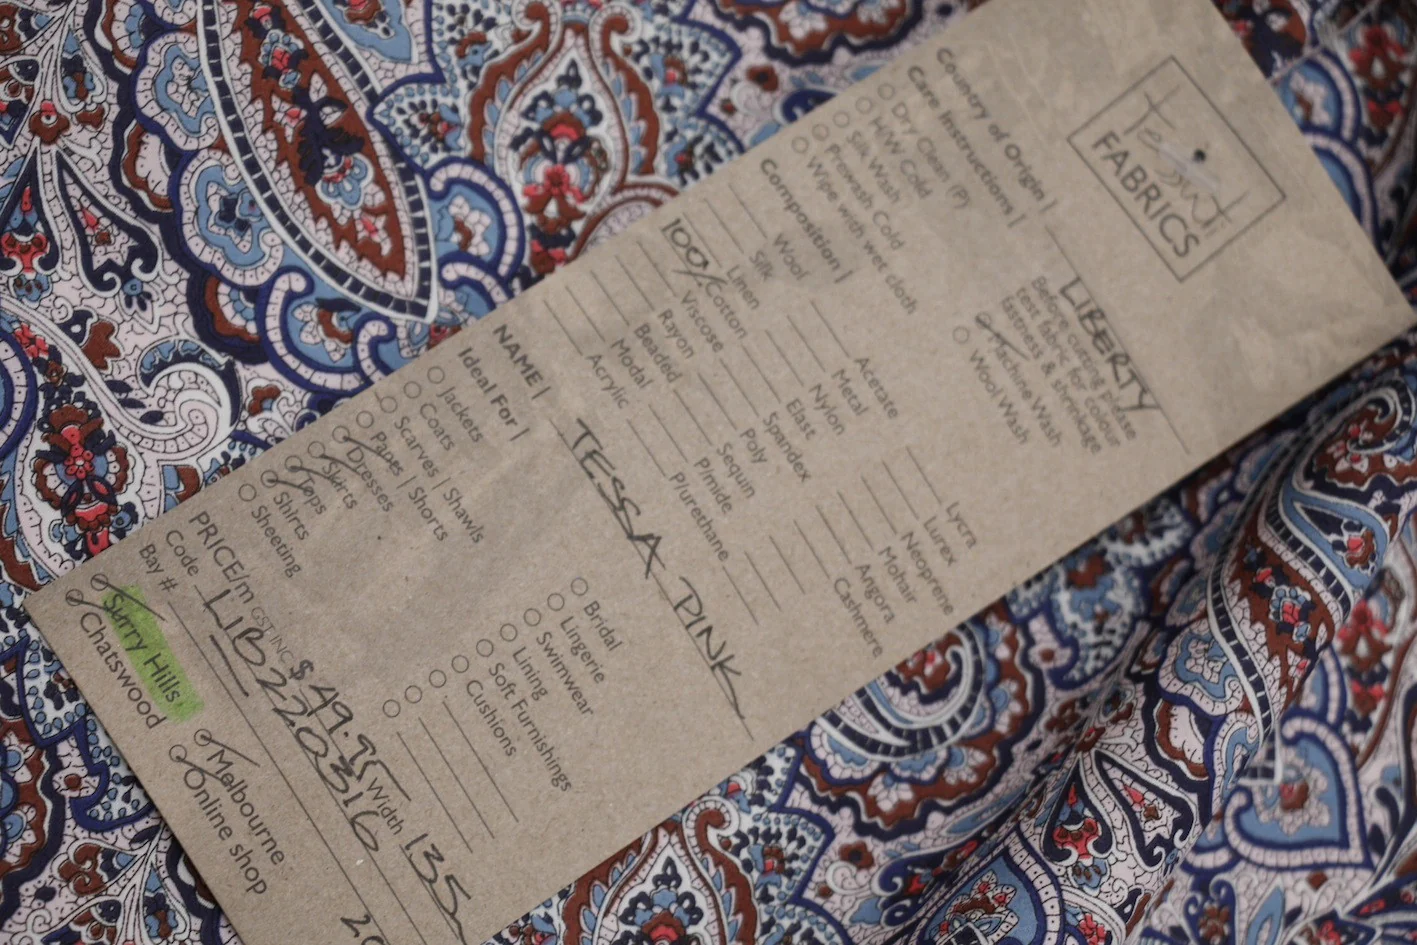 Tessuti
FABRICS
Country of Origin | LIBERTY
Care Instructions | Before cutting please
test fabric for colour
fastness & shrinkage
Dry Clean (P)
H/W Cold
Silk Wash
Prewash Cold
Wipe with wet cloth
Machine Wash
Wool Wash
Composition |
Wool
Silk
Linen
100% Cotton
Viscose
Rayon
Beaded
Modal
Acrylic
Acetate
Metal
Nylon
Elast
Spandex
Poly
Sequin
P/mide
P/urethane
Lycra
Lurex
Neoprene
Mohair
Angora
Cashmere
NAME | TESSA PINK
Ideal For |
Jackets
Coats
Scarves | Shawls
Pants | Shorts
Dresses
Skirts
Tops
Shirts
Sheeting
Bridal
Lingerie
Swimwear
Lining
Soft Furnishings
Cushions
PRICE/m GST INC $ 49.95 Width 135
Code LIB220316
Bay #
Surry Hills
Chatswood
Melbourne
Online shop